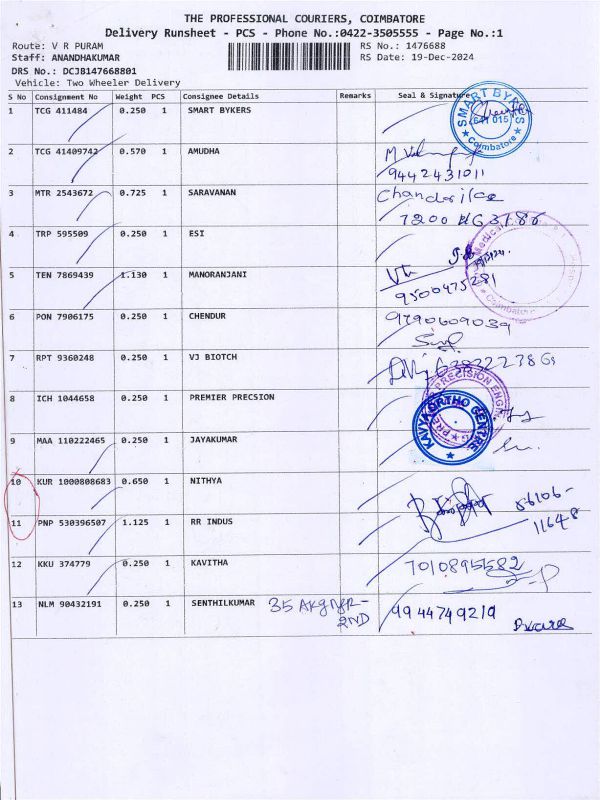 THE PROFESSIONAL COURIERS, COIMBATORE
Delivery Runsheet - PCS - Phone No.:0422-3505555 - Page No.:1
Route: V R PURAM RS No.: 1476688
Staff: ANANDHAKUMAR RS Date: 19-Dec-2024
DRS No.: DCJB147668801
Vehicle: Two Wheeler Delivery
S No Consignment No Weight PCS Consignee Details Remarks Seal & Signature
1 TCG 411484 0.250 1 SMART BYKERS
SMART BYKERS 641 015 Coimbatore
2 TCG 41409742 0.570 1 AMUDHA
9442431011
3 MTR 2543672 0.725 1 SARAVANAN
4 TRP 595509 0.250 1 ESI
5 TEN 7869439 1.130 1 MANORANJANI 9500475281
Coimbatore
6 PON 7906175 0.250 1 CHENDUR 9790609039
7 RPT 9360248 0.250 1 VJ BIOTCH
8 ICH 1044658 0.250 1 PREMIER PRECSION
PRECISION ENGIN
KAVYA ORTHO CENTRE
9 MAA 110222465 0.250 1 JAYAKUMAR
10 KUR 1000808683 0.650 1 NITHYA
86106-
11648
11 PNP 530396507 1.125 1 RR INDUS
12 KKU 374779 0.250 1 KAVITHA 7010895582
13 NLM 90432191 0.250 1 SENTHILKUMAR 35 9944749219
2ND